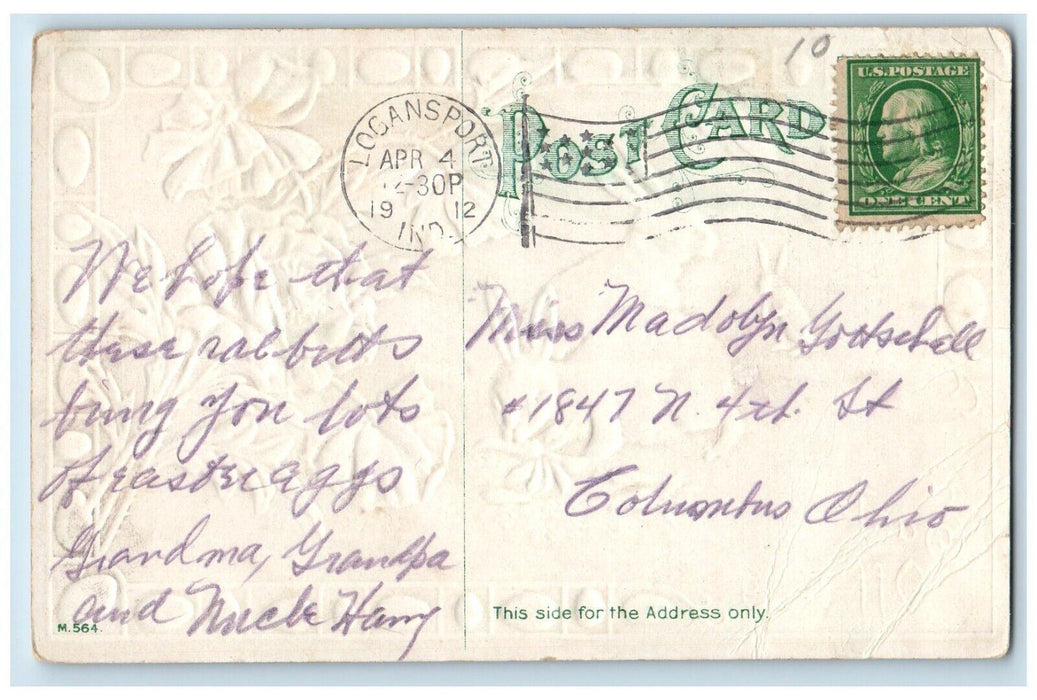 10
POST CARD
U.S. POSTAGE
ONE CENT
LOGANSPORT
APR 4
12-30P
19 12
IND.
We hope that
these rabbitts
bring you lots
of easter eggs
Grandma, Grandpa
and Uncle Harry
Miss Madolyn Gottschall
#1847 N. 4th. St
Columbus Ohio
This side for the Address only.
M.564.